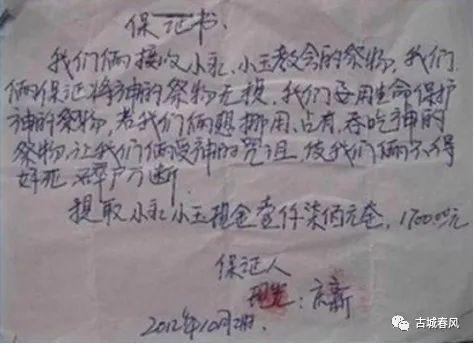 保证书.
我们俩接收小永、小玉教会的祭物,我们
俩保证将神的祭物无损,我们要用生命保护
神的祭物,若我们俩想挪用、占有、吞吃神的
祭物,让我们俩受神的咒诅,使我们俩不得
好死 不断.
提取小永小玉现金壹仟柒佰元奎,1700.00元
保证人
:京新
2012年10月2号.
古城春风